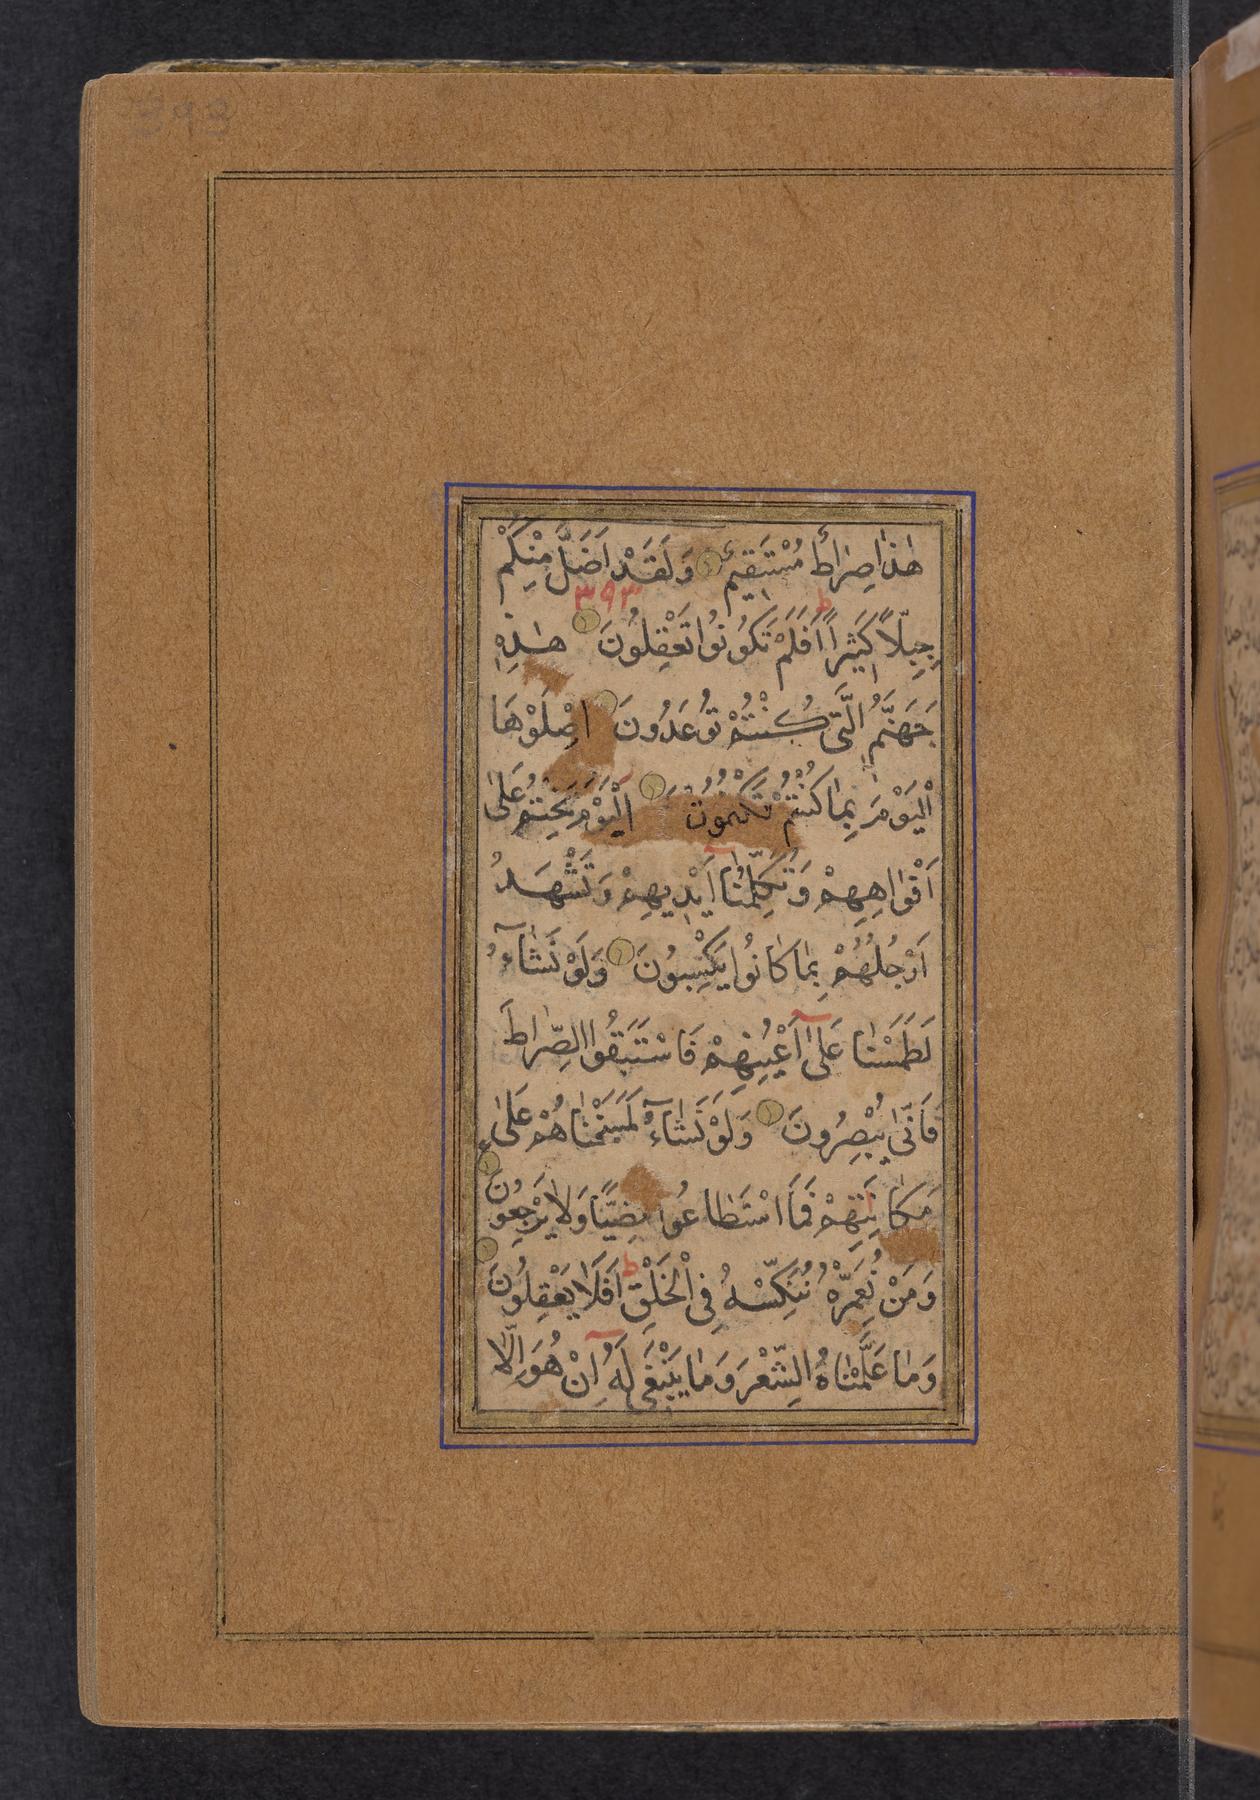 393
هٰذَا صِرَاطٌ مُسْتَقِيمٌ وَلَقَدْ اَضَلَّ مِنْكُمْ
٣٩٣
جِبِلًّا كَثِيرًا ط اَفَلَمْ تَكُونُوا تَعْقِلُونَ هٰذِهِ
جَهَنَّمُ الَّتِي كُنْتُمْ تُوعَدُونَ اِصْلَوْهَا
الْيَوْمَ بِمَا كُنْتُمْ تَكْفُرُونَ اَلْيَوْمَ نَخْتِمُ عَلٰى
اَفْوَاهِهِمْ وَتُكَلِّمُنَا اَيْدِيهِمْ وَتَشْهَدُ
اَرْجُلُهُمْ بِمَا كَانُوا يَكْسِبُونَ وَلَوْ نَشَآءُ
لَطَمَسْنَا عَلٰى اَعْيُنِهِمْ فَاسْتَبَقُوا الصِّرَاطَ
فَاَنّٰى يُبْصِرُونَ وَلَوْ نَشَآءُ لَمَسَخْنَاهُمْ عَلٰى
مَكَانَتِهِمْ فَمَا اسْتَطَاعُوا مُضِيًّا وَلَا يَرْجِعُونَ
وَمَنْ نُعَمِّرْهُ نُنَكِّسْهُ فِي الْخَلْقِ ط اَفَلَا يَعْقِلُونَ
وَمَا عَلَّمْنَاهُ الشِّعْرَ وَمَا يَنْبَغِي لَهُ اِنْ هُوَ اِلَّا